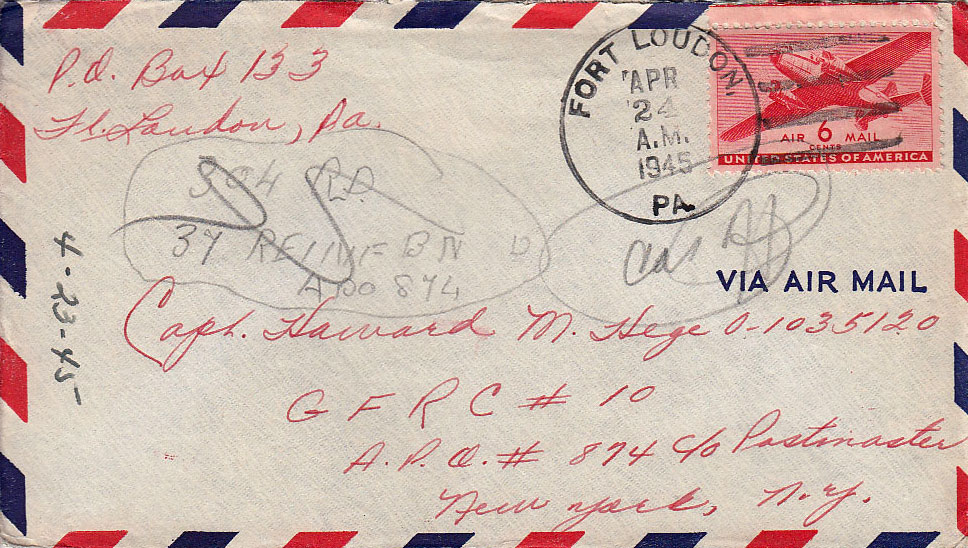 P.O. Box 133
Ft. Loudon, Pa.
FORT LOUDON,
APR
24
A.M.
1945
PA
AIR 6 MAIL
CENTS
UNITED STATES OF AMERICA
VIA AIR MAIL
RD
37 REINF BN
APO 874
4-23-45
Capt. Howard M. Hege O-1035120
G F R C # 10
A.P.O. # 874 c/o Postmaster
New York, N.Y.